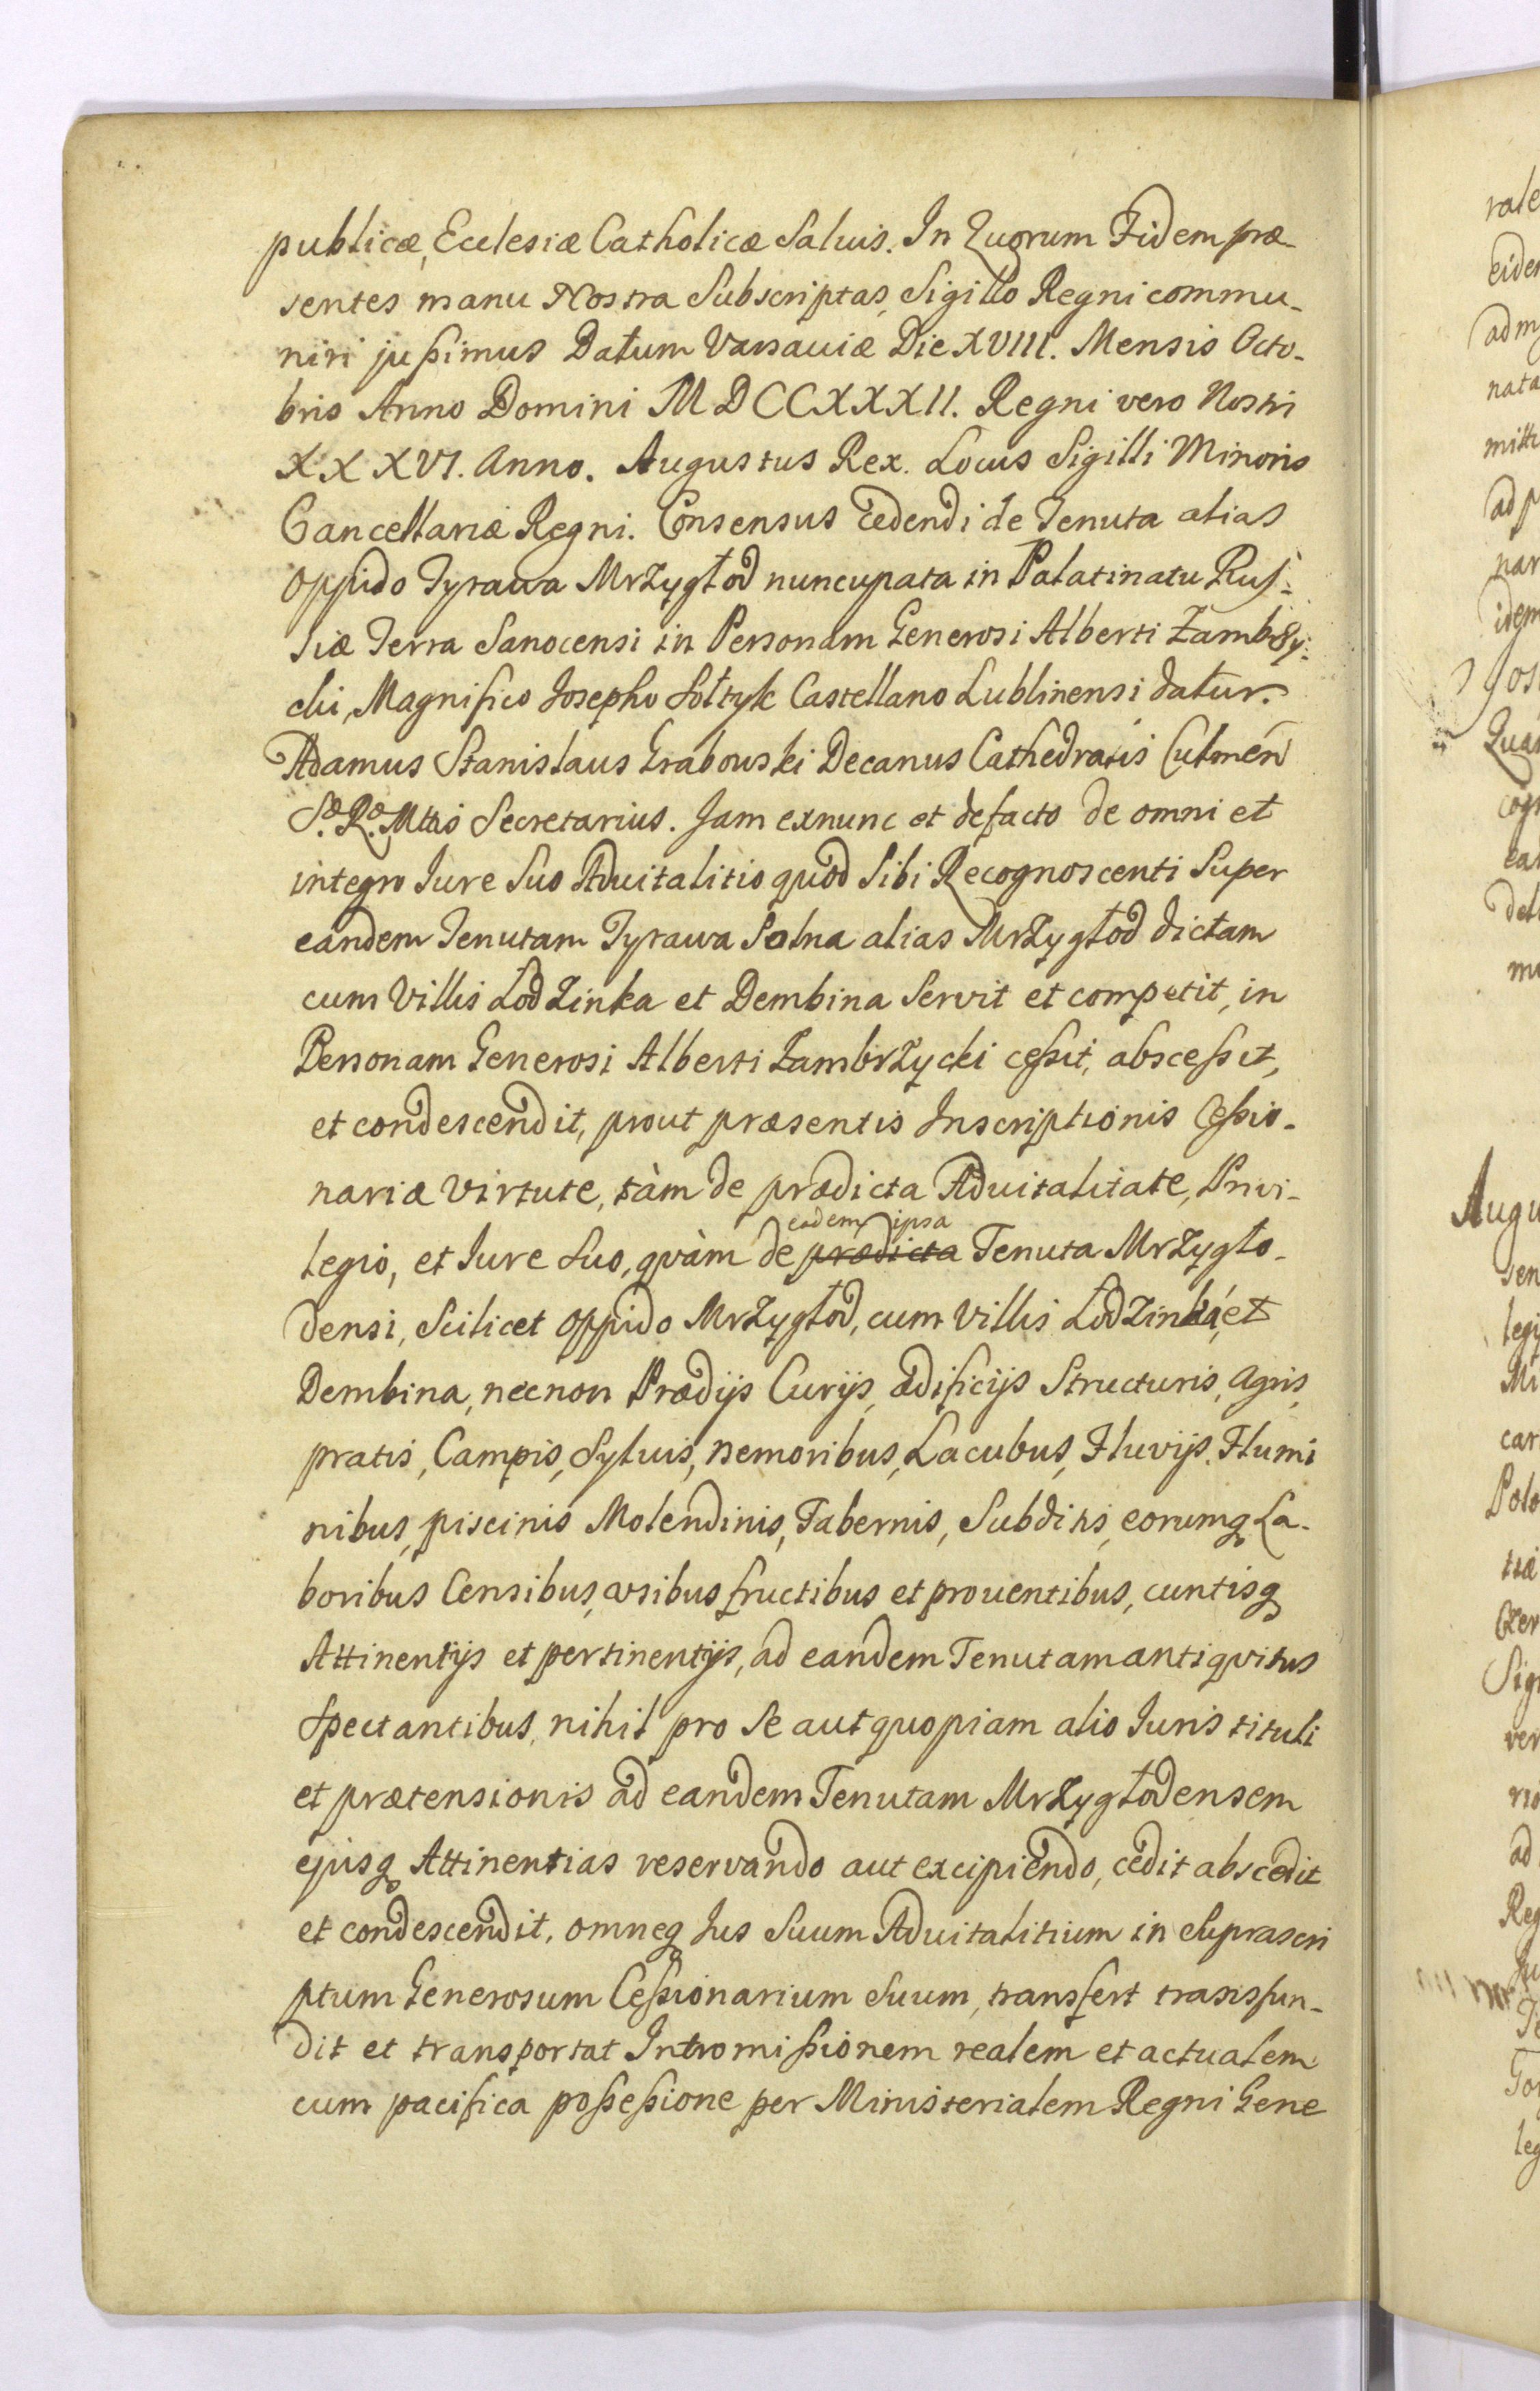 publicæ, Ecclesiæ Catholicæ Saluis. In Quorum Fidem præ-
sentes manu Nostra Subscriptas, Sigillo Regni commu-
niri jußimus Datum Varsaviæ Die XVIII. Mensis Octo-
bris Anno Domini MDCCXXXII. Regni vero Nostri
XXXVI. Anno. Augustus Rex. Locus Sigilli Minoris
Cancellariæ Regni. Consensus Cedendi de Tenuta alias
Oppido Tyrawa Mrzygłod nuncupata in Palatinatu Rus-
siæ Terra Sanocensi in Personam Generosi Alberti Zambrzy-
cki, Magnifico Josepho Sołtyk Castellano Lublinensi datur.
Adamus Stanislaus Grabowski Decanus Cathedralis Culmen
Sæ. Ræ. Mttis Secretarius. Jam exnunc et defacto de omni et
integro Jure Suo Advitalitio quod Sibi Recognoscenti Super
eandem Tenutam Tyrawa Solna alias Mrzygłod dictam
cum Villis Lodzinka et Dembina Servit et competit, in
Personam Generosi Alberti Zambrzycki ceßit, absceßit,
et condescendit, prout præsentis Inscriptionis Ceßio-
nariæ virtute, tàm de prædicta Advitalitate, Privi-
eadem ipsa
legio, et Jure Suo, qvàm de prædicta Tenuta Mrzygło-
densi, Scilicet Oppido Mrzygłod, cum Villis Lodzinka, et
Dembina, necnon Prædijs Curijs, ædificijs Structuris, Agris,
pratis, Campis, Syluis, nemoribus, Lacubus, Fluvijs, Flumi
nibus, piscinis Molendinis, Tabernis, Subditis, eorumq La-
boribus Censibus, vsibus fructibus et prouentibus, cuntisq
Attinentijs et pertinentijs, ad eandem Tenutam antiqvitus
Spectantibus, nihil pro Se aut quopiam alio Juris tituli
et prætensionis ad eandem Tenutam Mrzygłodensem
ejusq Attinentias reservando aut excipiendo, cedit abscedit
et condescendit, omneq Jus Suum Advitalitium in Suprascri
ptum Generosum Ceßionarium Suum, transfert transfun-
dit et transportat Intromißionem realem et actualem
cum pacifica poßeßione per Ministerialem Regni Gene